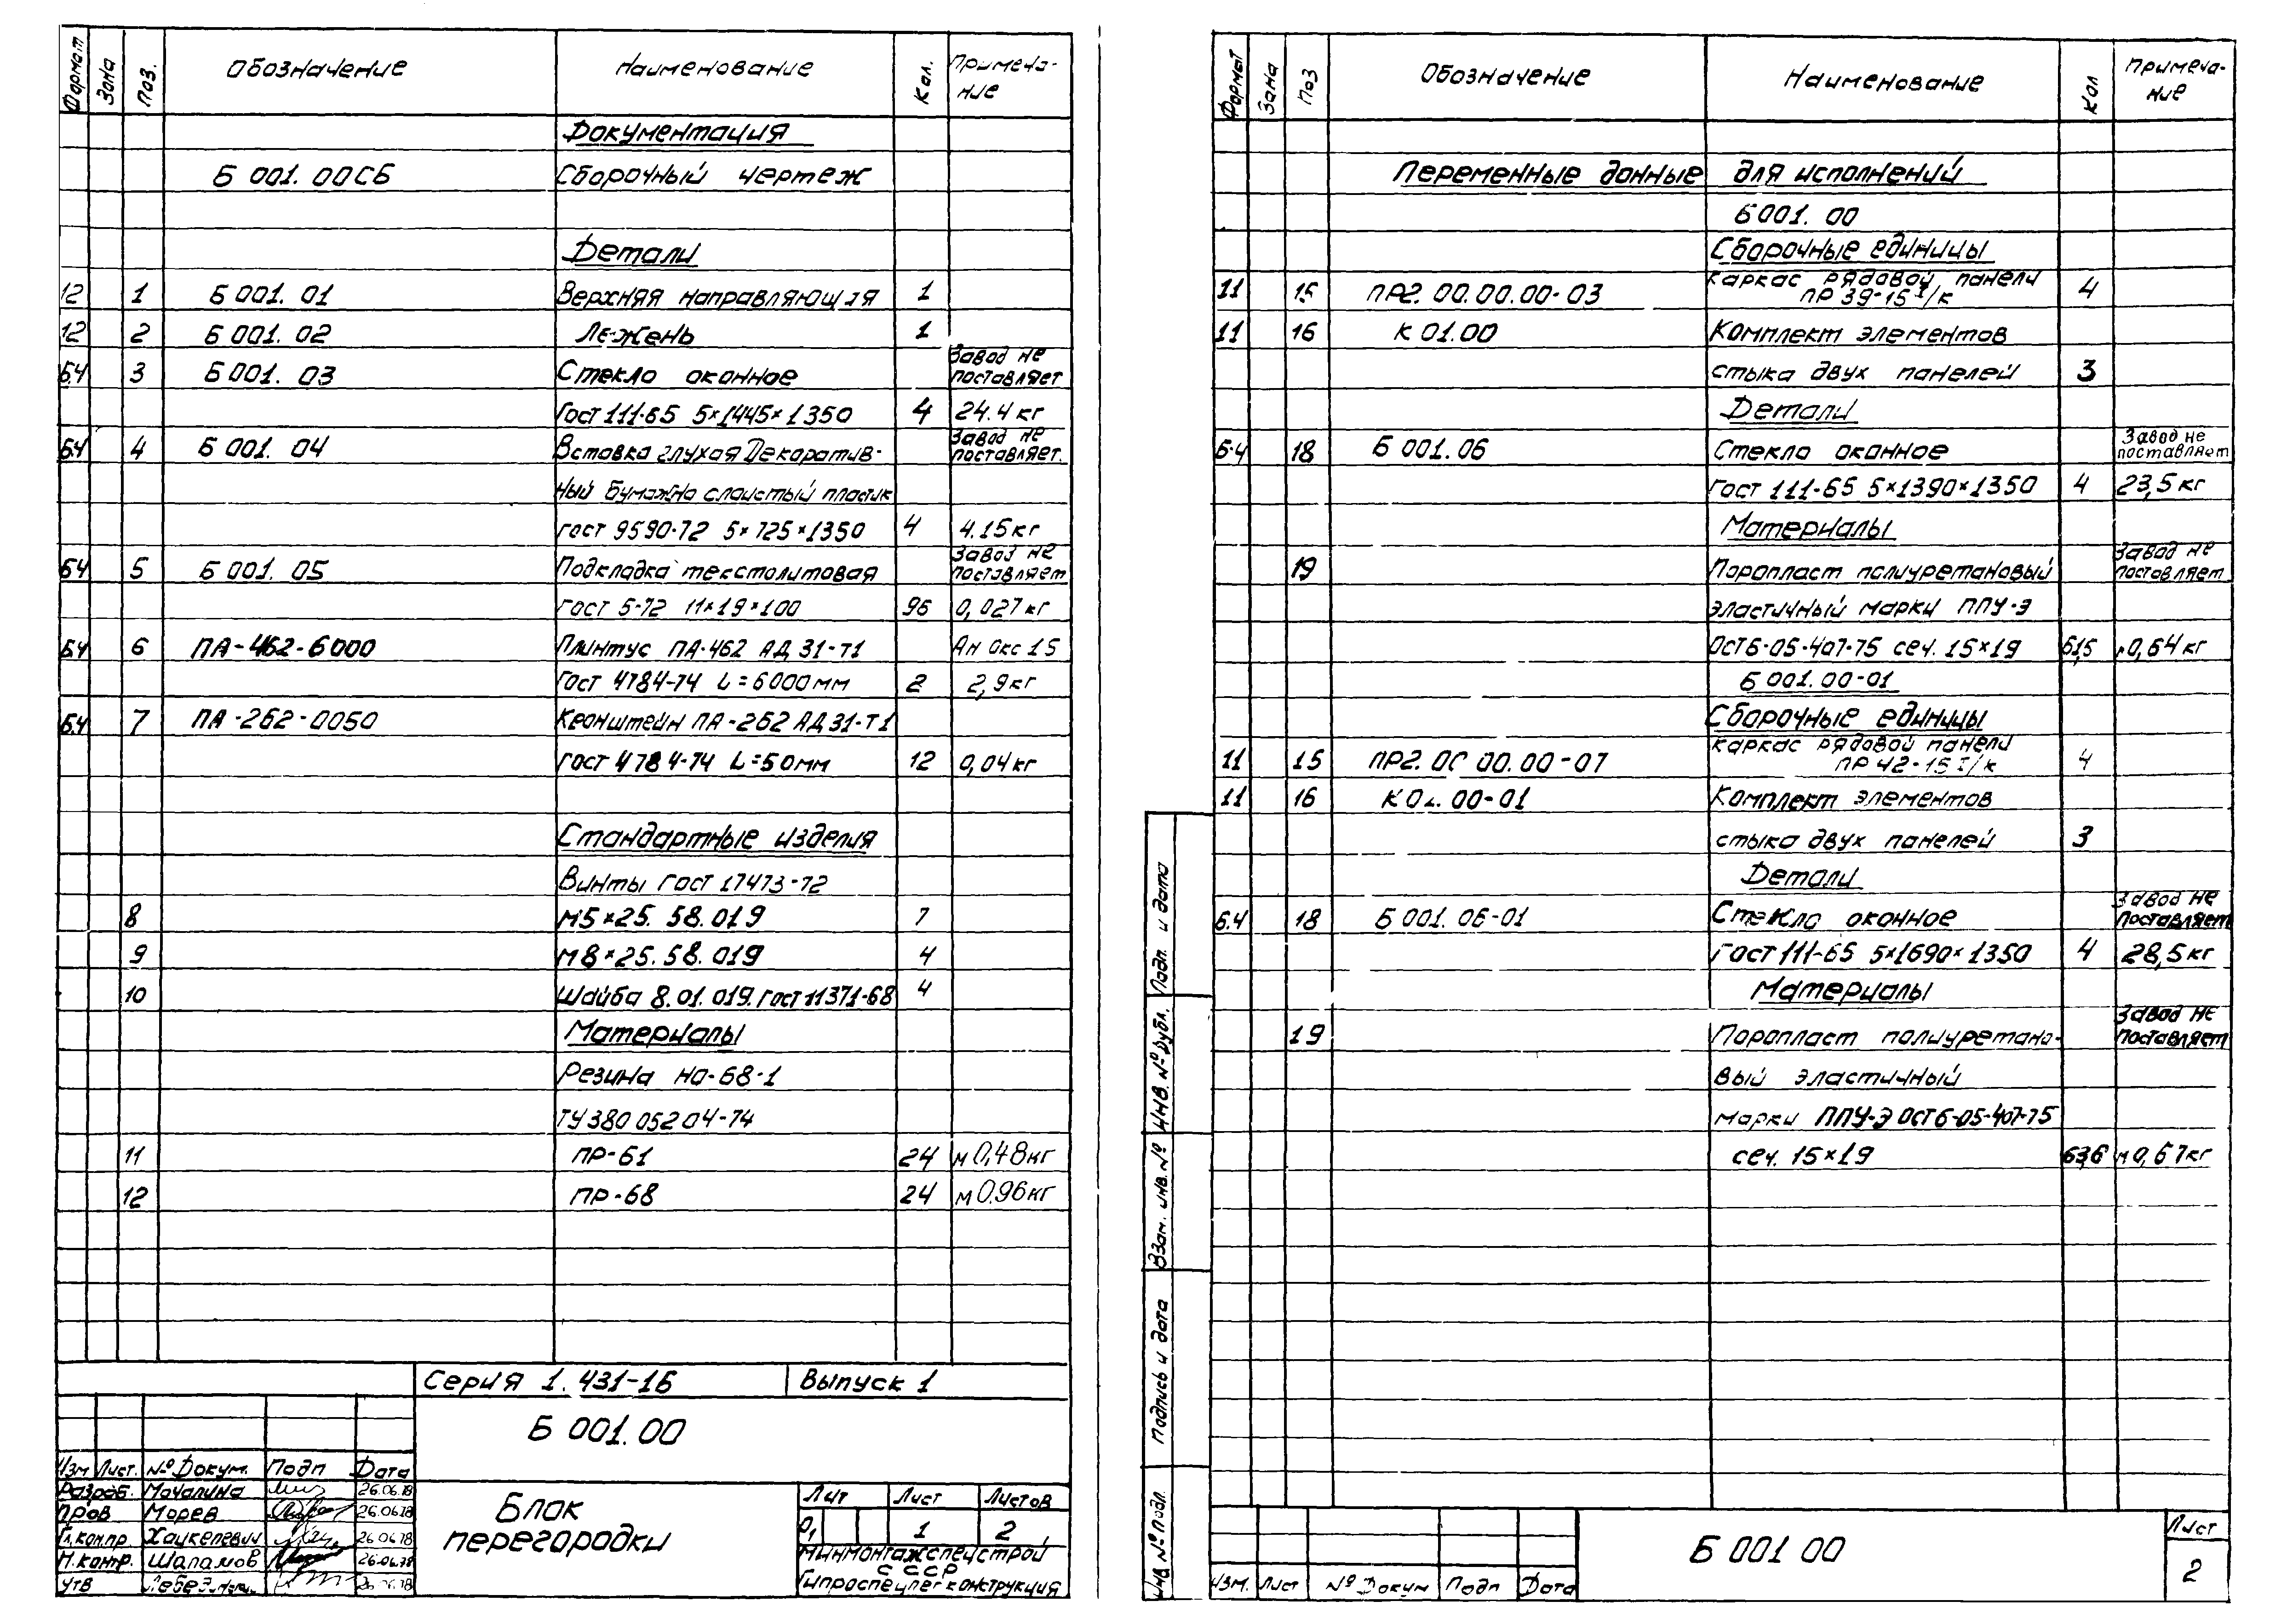 Формат Зона Поз. Обозначение Наименование Кол. Примеча-
ние
Документация
Б 001. 00СБ Сборочный чертеж
Детали
12 1 Б 001. 01 Верхняя направляющая 1
12 2 Б 001. 02 Лежень 1
Б4 3 Б 001. 03 Стекло оконное Завод не поставляет
Гост 111-65 5×1445×1350 4 24.4 кг
Б4 4 Б 001. 04 Вставка глухая Декоратив- Завод не поставляет.
ный бумажно слоистый пластик
гост 9590-72 5×725×1350 4 4.15кг
Б4 5 Б 001. 05 Подкладка текстолитовая Завод не поставляет
гост 5-72 11×19×100 96 0,027 кг
Б4 6 ПА-462-6000 Плинтус ПА-462 АД 31-т1 Ан Окс 15
Гост 4784-74 L=6000мм 2 2,9кг
Б4 7 ПА-262-0050 Кронштейн ПА-262 АД31-Т1
гост 4784-74 L=50мм 12 0,04кг
Стандартные изделия
Винты гост 17473-72
8 М5×25. 58. 019 7
9 М8×25. 58. 019 4
10 Шайба 8.01.019. гост 11371-68 4
Материалы
Резина НО-68-1
ТУ 380 052 04-74
11 ПР-61 24 м 0,48кг
12 ПР-68 24 м 0.96кг
Серия 1.431-16 Выпуск 1
Б 001.00
Изм Лист. № Докум. Подп Дата
Разраб. Мочалина 26.06.78
Пров Морев 26.06.78
Гл.кон.пр. Хацкелевич 26.06.78
Н.контр. Шаламов 26.06.78
Утв 26.06.78
Блок
перегородки
Лит Лист Листов
1 2
Минмонтажспецстрой
СССР
Гипроспецлегконструкция
Формат Зона Поз Обозначение Наименование Кол Примеча-
ние
Переменные данные для исполнений
Б001. 00
Сборочные единицы
11 15 ПР2. 00.00.00-03 Каркас рядовой панели
ПР 39-15 I/к 4
11 16 К 01.00 Комплект элементов
стыка двух панелей 3
Детали
Б.4 18 Б 001. 06 Стекло оконное Завод не поставляет
гост 111-65 5×1390×1350 4 23,5 кг
Материалы
19 Поропласт полиуретановый Завод не поставляет
эластичный марки ППУ-Э
Ост 6-05-407-75 сеч. 15×19 61,5 м 0,64 кг
Б 001. 00-01
Сборочные единицы
11 15 ПР2. 00 00.00-07 каркас рядовой панели
ПР 42-15 I/к 4
11 16 00-01 Комплект элементов
стыка двух панелей 3
Детали
Б.4 18 Б 001. 06-01 Стекло оконное Завод не поставляет
Гост 111-65 5×1690×1350 4 28,5 кг
Материалы
19 Поропласт полиурето̀но- Завод не поставляет
вый эластичный
марки ППУ-Э ОСТ 6-05-407-75
сеч. 15×19 63,6 м 0,67кг
Подп. и дата
Инв. № дубл.
Взам. инв. №
Подпись и дата
Инв № подл.
Изм. Лист № Докум Подп Дата
Б 001 00
Лист
2